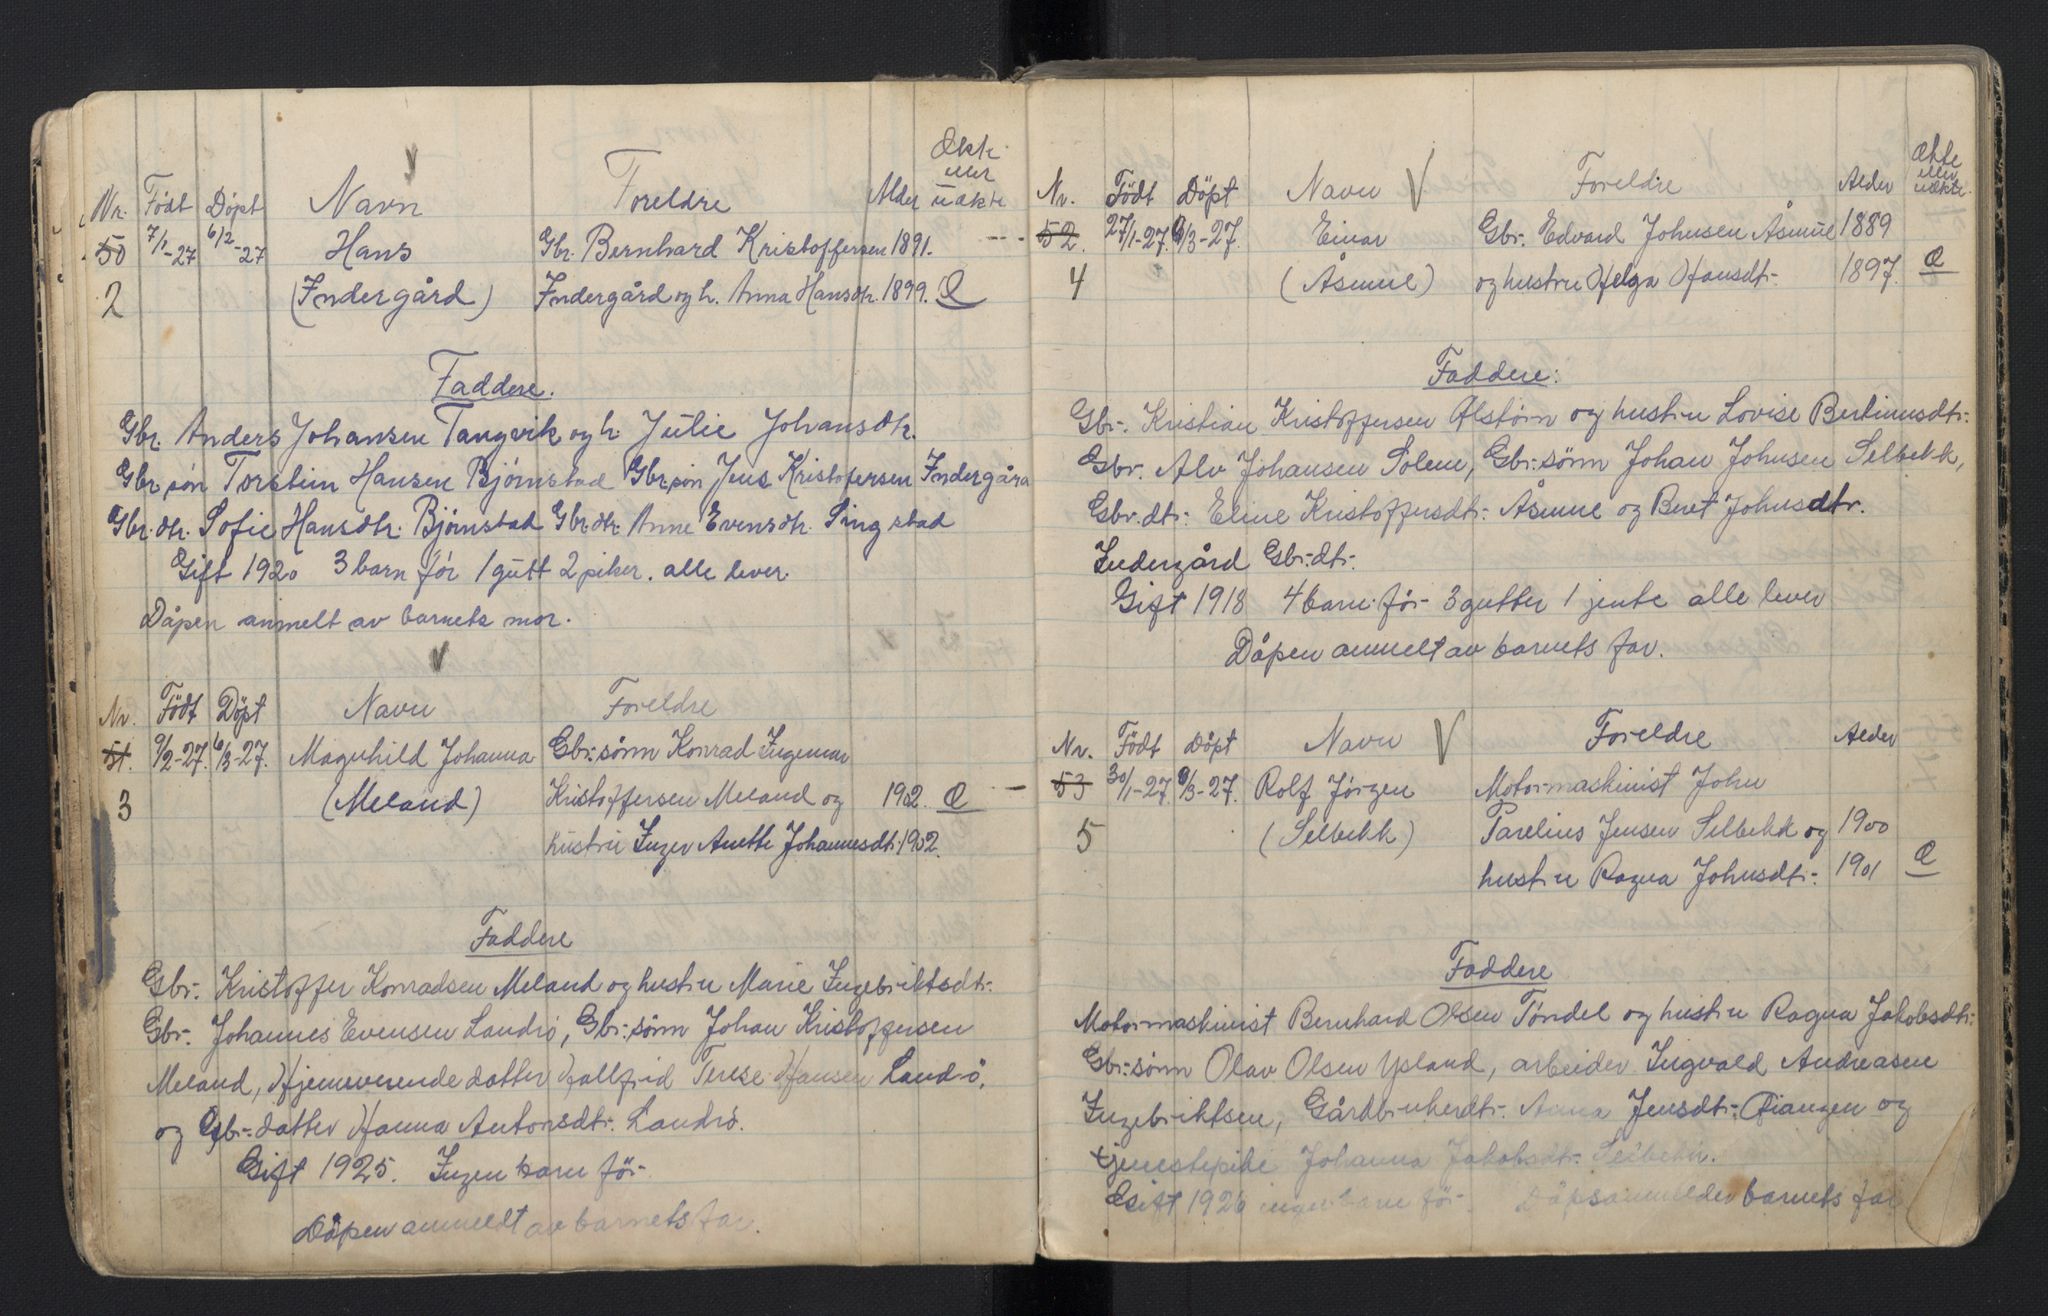 Nr. Født Døpt Navn Foreldre Alder Ekte eller uekte
50 7/1-27 6/2-27 Hans Gbr. Bernhard Kristoffersen 1891.
2 (Indergård) Indergård og h. Anna Hansdtr. 1899. Æ
Faddere.
Gbr. Anders Johansen Tangvik og h. Julie Johansdtr.
Gbr.søn Torstein Hansen Bjørnstad Gbr.søn Jens Kristofersen Indergård
Gbr.dtr. Sofie Hansdtr. Bjørnstad Gbr.dtr. Anne Evensdtr. Singstad
Gift 1920 3 barn før 1 gutt 2 piker. alle lever.
Dåpen anmelt av barnets mor.
Nr. Födt Döpt Navn Foreldre
51. 9/2-27. 6/3-27. Magnhild Johanna Gbr.-sönn Konrad Ingemar
3 (Meland) Kristoffersen Meland og 1902. Æ
hustru Inger Anette Johannesdtr. 1902.
Faddere
Gbr. Kristoffer Konradsen Meland og hustru Marie Ingebriktsdtr.
Gbr. Johannes Evensen Landrö, Gbr.-sönn Johan Kristoffersen
Meland, Hjemeverende datter Hallfrid Terese Hansen Landrö,
og Gbr.-datter Hanna Antonsdtr. Landrö.
Gift 1925. Ingen barn för.
Dåpen anmeldt av barnets far.
Nr. Födt Döpt Navn Foreldre Alder Ekte eller uekte.
52. 27/1-27. 6/3-27. Einar Gbr. Edvard Johnsen Åsmul 1889
4 (Åsmul) og hustru Helga Hansdtr. 1897. Æ
Faddere:
Gbr. Kristian Kristoffersen Ålstörn og hustru Lovise Bertinusdtr.
Gbr. Alv Johansen Solem, Gbr.-sönn Johan Johnsen Selbekk,
Gbr.dtr. Eline Kristoffersdtr. Åsmul og Beret Johnsdtr.
Indergård Gbr.-dtr.
Gift 1918 4 barn för 3 gutter 1 jente alle lever
Dåpen anmelt av barnets far.
Nr. Födt Döpt Navn Foreldre Alder
53 30/1-27 6/3-27. Rolf Jörgen Motormaskinist John
5 (Selbekk) Parelius Jensen Selbekk og 1900
hustru Ragna Johnsdtr. 1901 Æ
Faddere
Motormaskinist Bernhard Olsen Töndel og hustru Ragna Jakobsdtr.
Gbr.-sönn Olav Olsen Ysland, arbeider Ingvald Andreasen
Ingebriktsen, Gårdbrukerdtr. Anna Jensdtr. Fiangen og
tjenestepike Johanna Jakobsdtr. Selbekk.
Gift 1926 ingen barn för. Dåpsanmelder barnets far